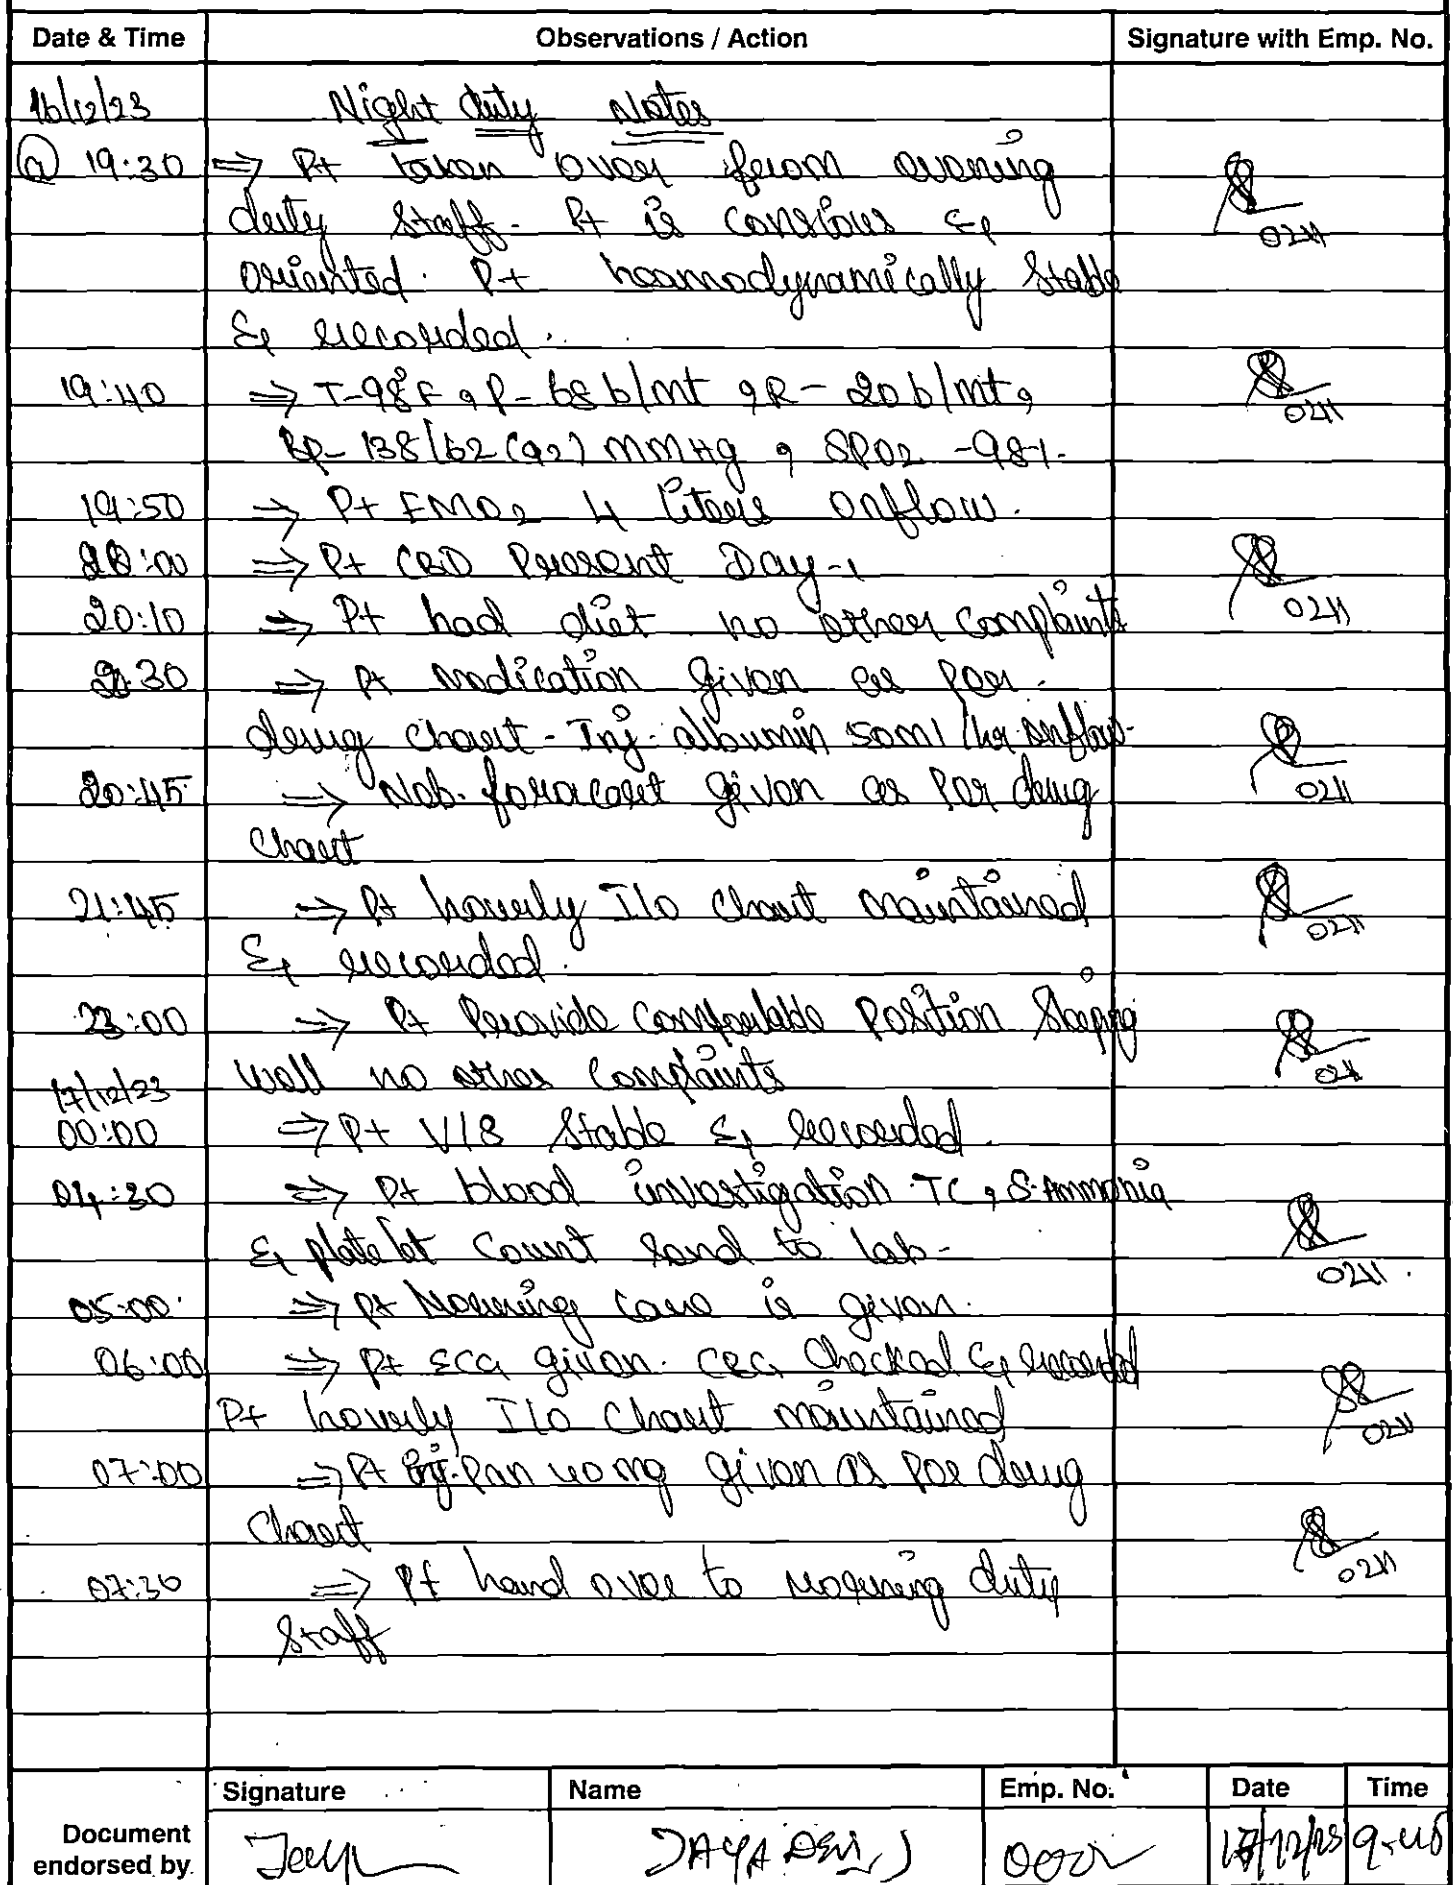 Date & Time Observations / Action Signature with Emp. No.
16/12/23 Night duty Notes
@ 19:30 ⇒ Pt taken over from evening
duty Staff. Pt is conscious &
0241
oriented. Pt haemodynamically Stable
& recorded.
19:40 ⇒ T-98°F, P-68 b/mt, R-20 b/mt,
0241
BP-138/62 (92) MMHg, SPO2 -98%.
19:50 ⇒ Pt FMO2 4 liters onflow.
20:00 ⇒ Pt CBD Present Day-1
20:10 ⇒ Pt had diet no other complaints
0241
20:30 ⇒ Pt medication given as per
drug chart - Inj. albumin 50ml/hr onflow.
20:45 ⇒ Neb. foracort given as per drug
0241
chart
21:45 ⇒ Pt hourly I/o chart maintained
0241
& recorded.
23:00 ⇒ Pt Provide comfortable Position Sleeping
well no other complaints
17/12/23
00:00 ⇒ Pt V/S Stable & recorded.
04:30 ⇒ Pt blood investigation TC, S.Ammonia
& platelet count send to lab-
0241
05:00 ⇒ Pt Morning care is given.
06:00 ⇒ Pt ECG given. CBG checked & recorded
Pt hourly I/o chart maintained
0241
07:00 ⇒ Pt Inj. Pan 40mg given as per drug
chart
0241
07:30 ⇒ Pt hand over to morning duty
Staff
Signature Name Emp. No. Date Time
Document
endorsed by. JAYA DEVI J 17/12/23